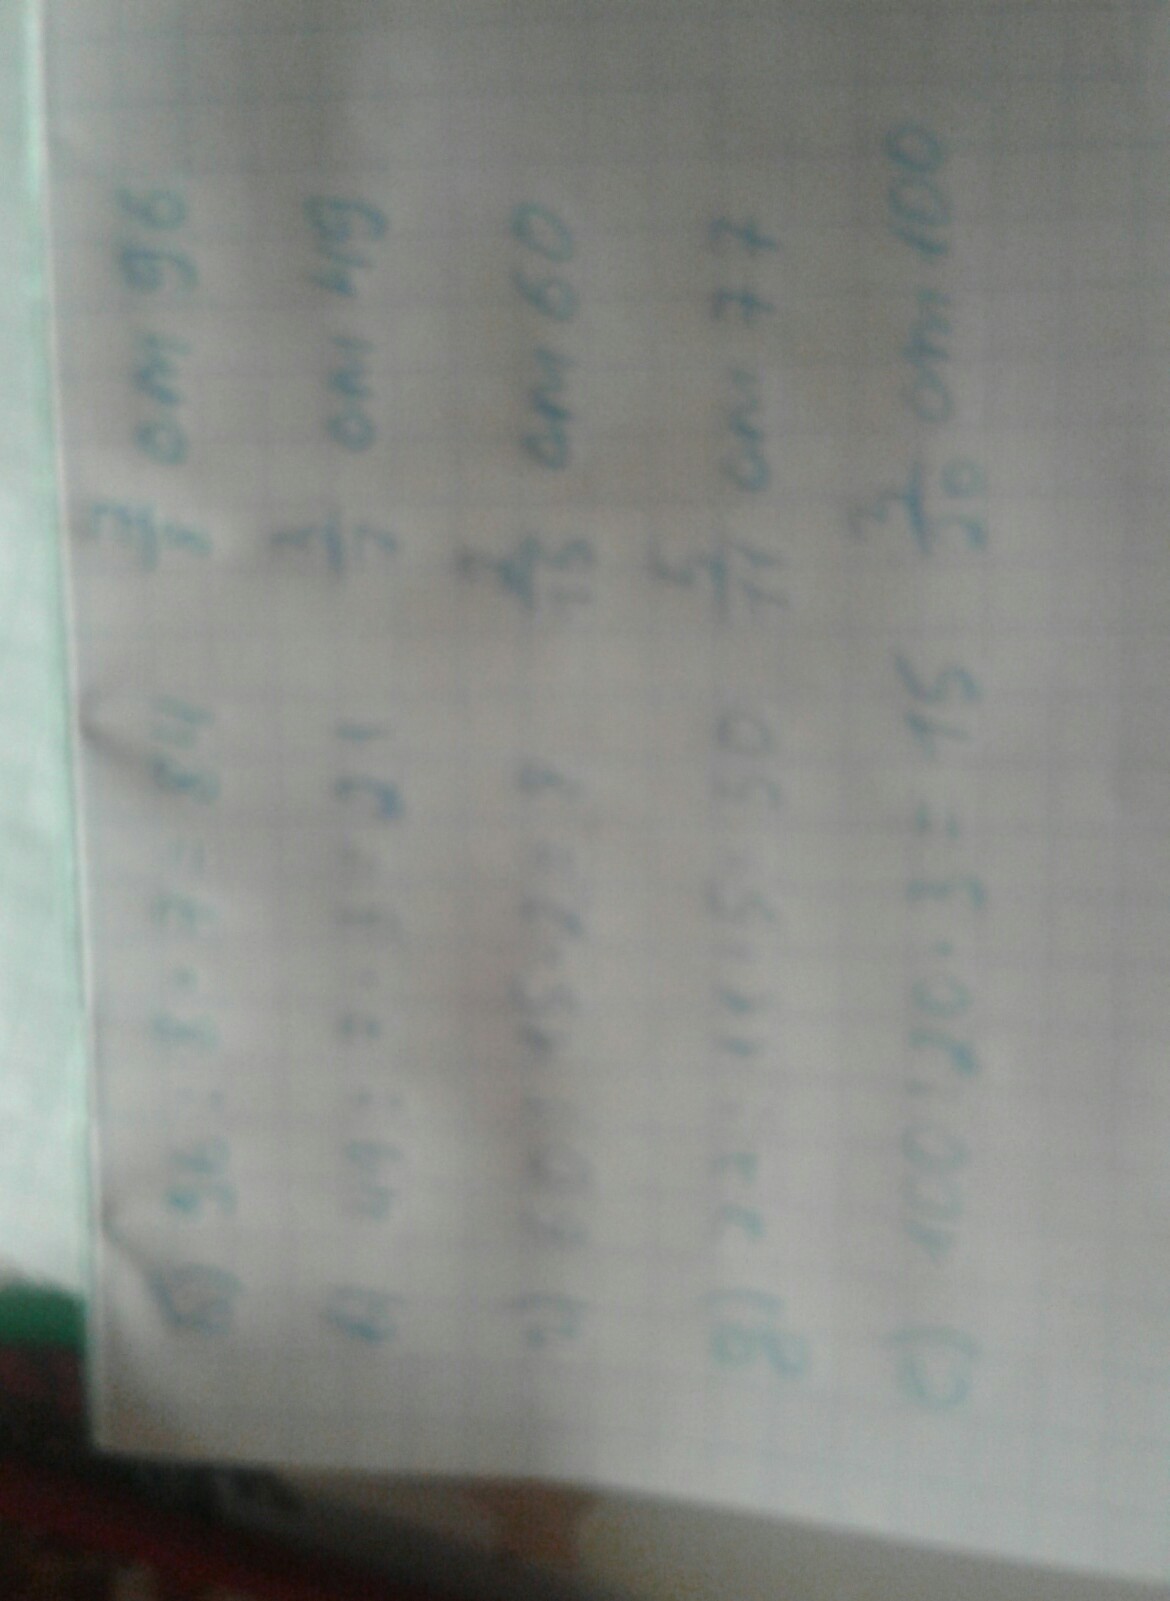 б) 96 : 8 · 7 = 84 7/8 от 96
в) 49 : 7 · 3 = 21 3/7 от 49
г) 60 : 15 · 2 = 8 2/15 от 60
д) 77 : 11 · 5 = 50 5/11 от 77
е) 100 : 20 · 3 = 15 3/20 от 100